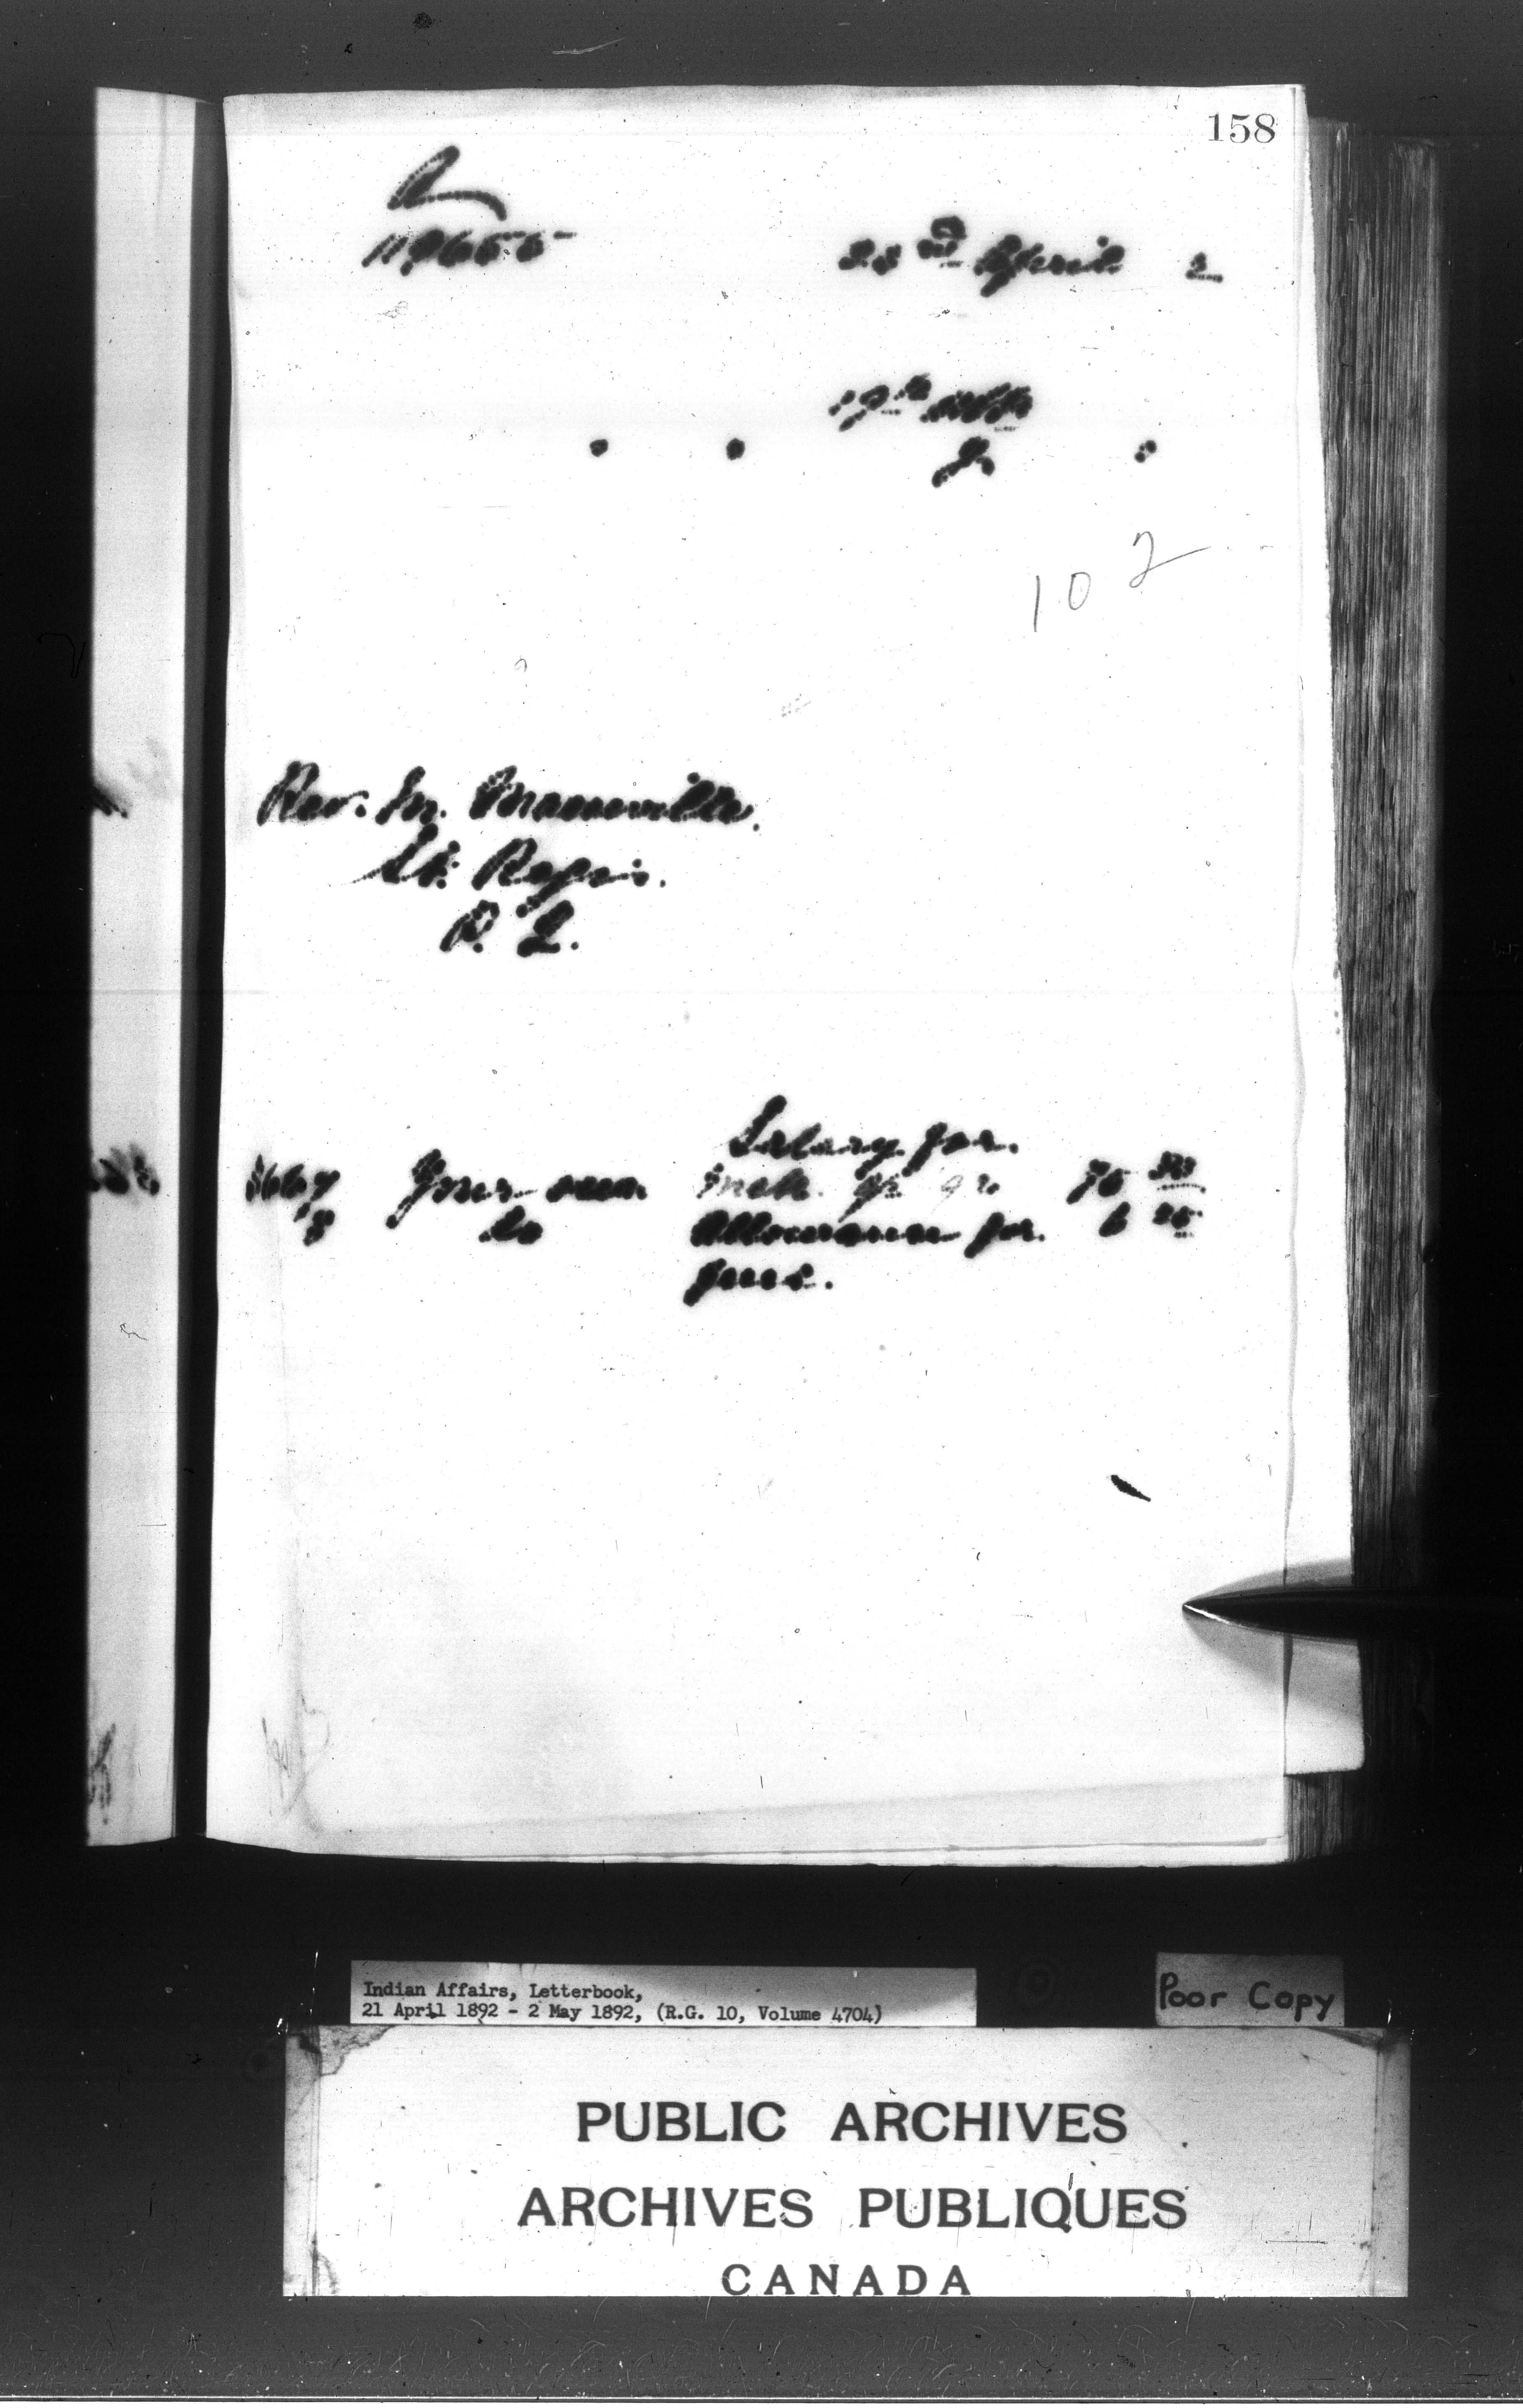 158
119655
23rd April 2
17th ulto
102
Rev. M. Mainville.
St. Regis.
P. Q.
8667 Your own
Salary for
Mch. qr 92 75 50
8 do Allowance for 6 25
fuel.
Indian Affairs, Letterbook,
21 April 1892 - 2 May 1892, (R.G. 10, Volume 4704)
Poor Copy
PUBLIC ARCHIVES
ARCHIVES PUBLIQUES
CANADA